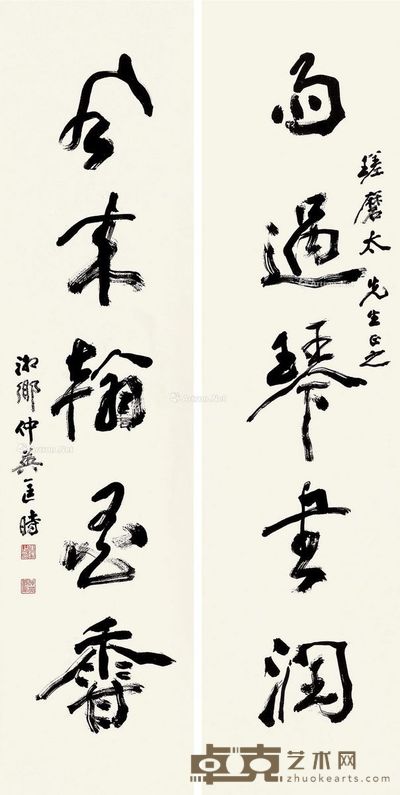 雨過琴書潤
瑳磨太先生正之
風來翰墨香
湘鄉仲英匡時
卓克艺术网
zhuokearts.com